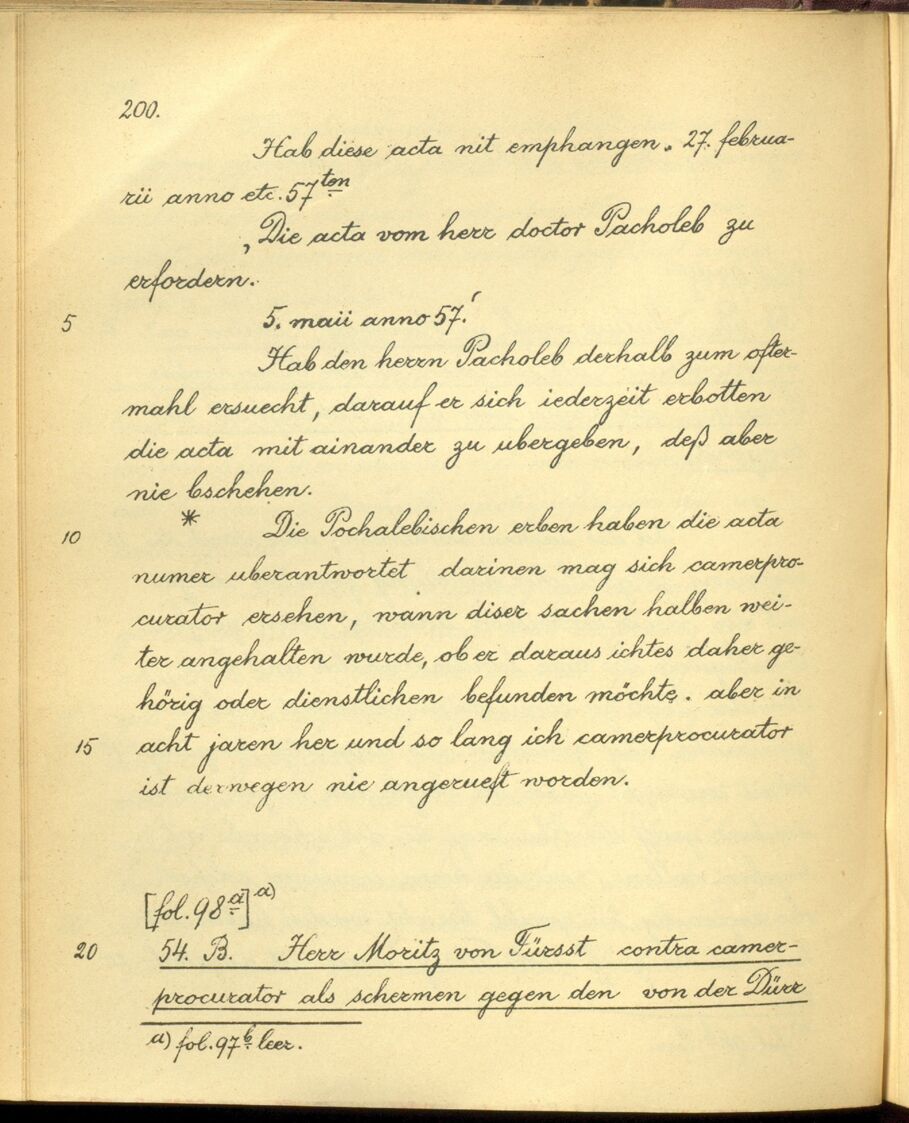 200.
Hab diese acta nit emphangen. 27. februa-
rii anno etc. 57ten
Die acta vom herr doctor Pacholeb zu
erfordern.
5 5. maii anno 57.
Hab den herrn Pacholeb derhalb zum ofter-
mahl ersuecht, darauf er sich iederzeit erbotten
die acta mit ainander zu ubergeben, deß aber
nie bschehen.
10 * Die Pochalebischen erben haben die acta
numer uberantwortet darinen mag sich camerpro-
curator ersehen, wann diser sachen halben wei-
ter angehalten wurde, ob er daraus ichtes daher ge-
hörig oder dienstlichen befunden möchte. aber in
15 acht jaren her und so lang ich camerprocurator
ist derwegen nie angerueft worden.
[fol. 98a] a)
20 54. B. Herr Moritz von Fürsst contra camer-
procurator als schermen gegen den von der Dürr
a) fol. 97b leer.